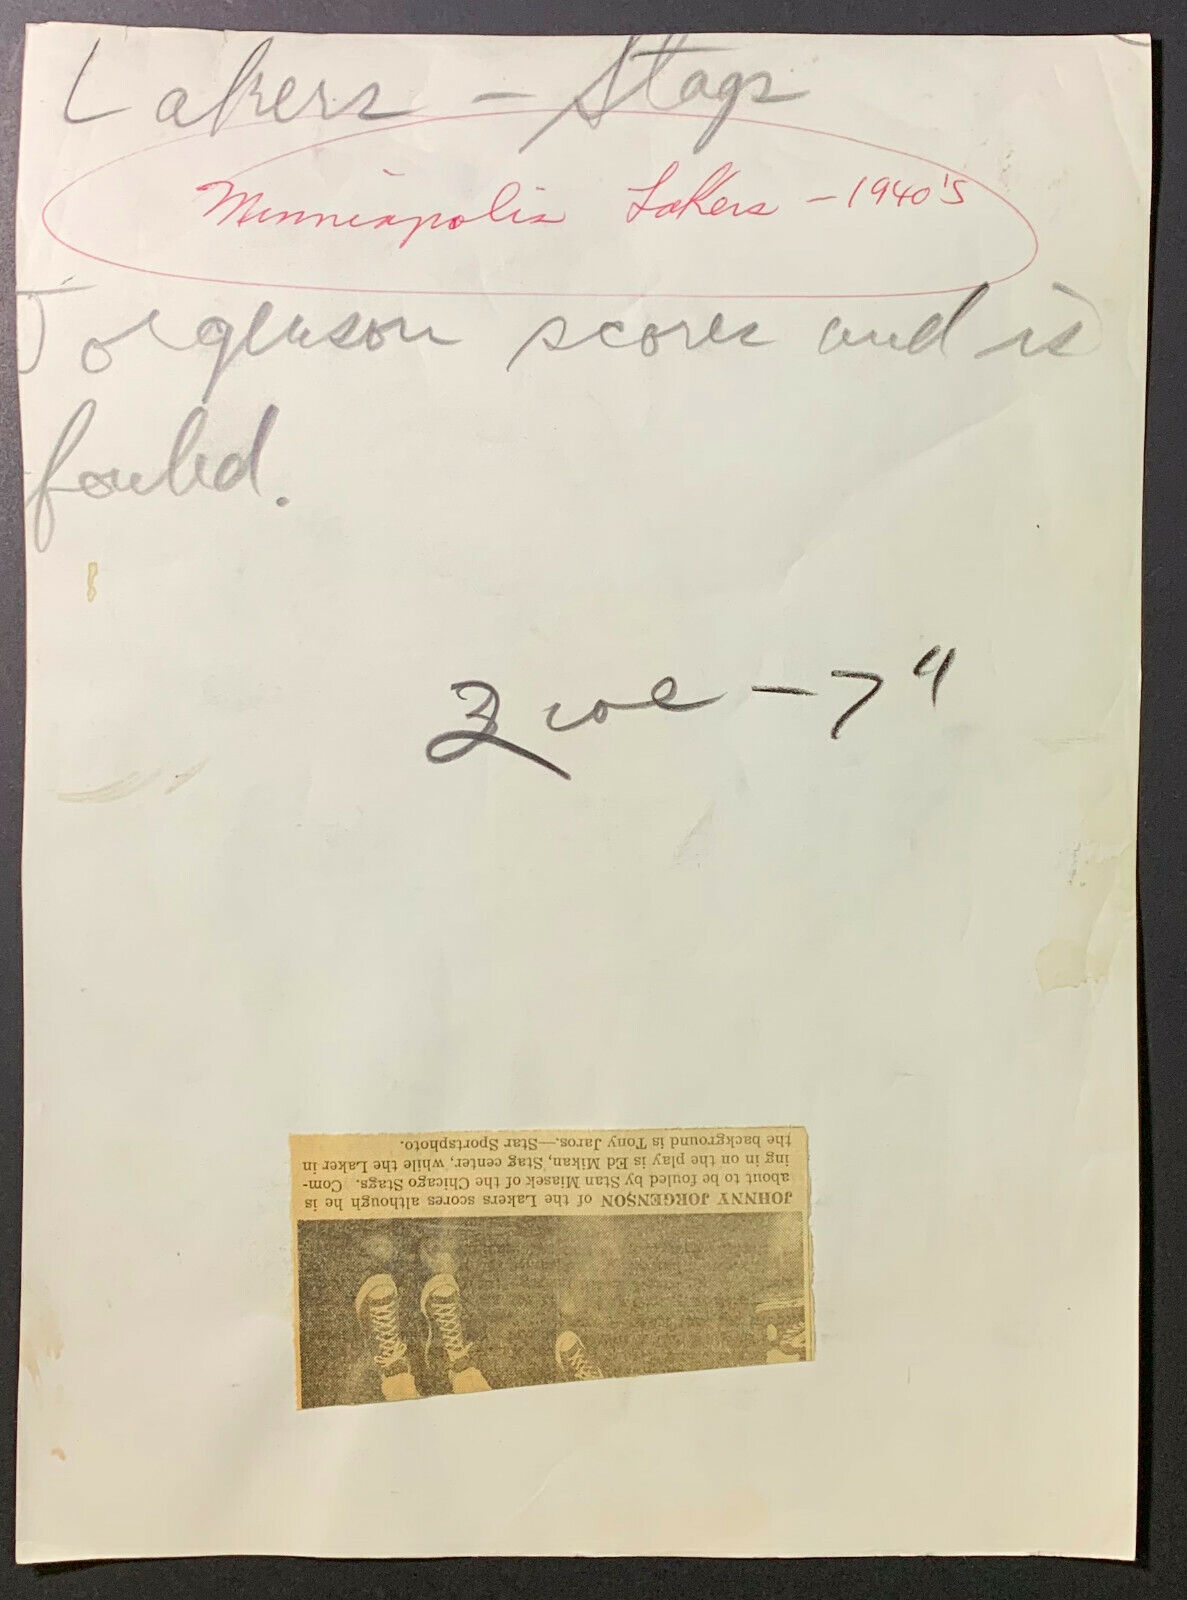 Lakers - Stags
Minneapolis Lakers - 1940's
Jorgenson scores and is
fouled.
2 col - 7"
JOHNNY JORGENSON of the Lakers scores although he is
about to be fouled by Stan Miasek of the Chicago Stags. Com-
ing in on the play is Ed Mikan, Stag center, while the Laker in
the background is Tony Jaros.—Star Sportsphoto.